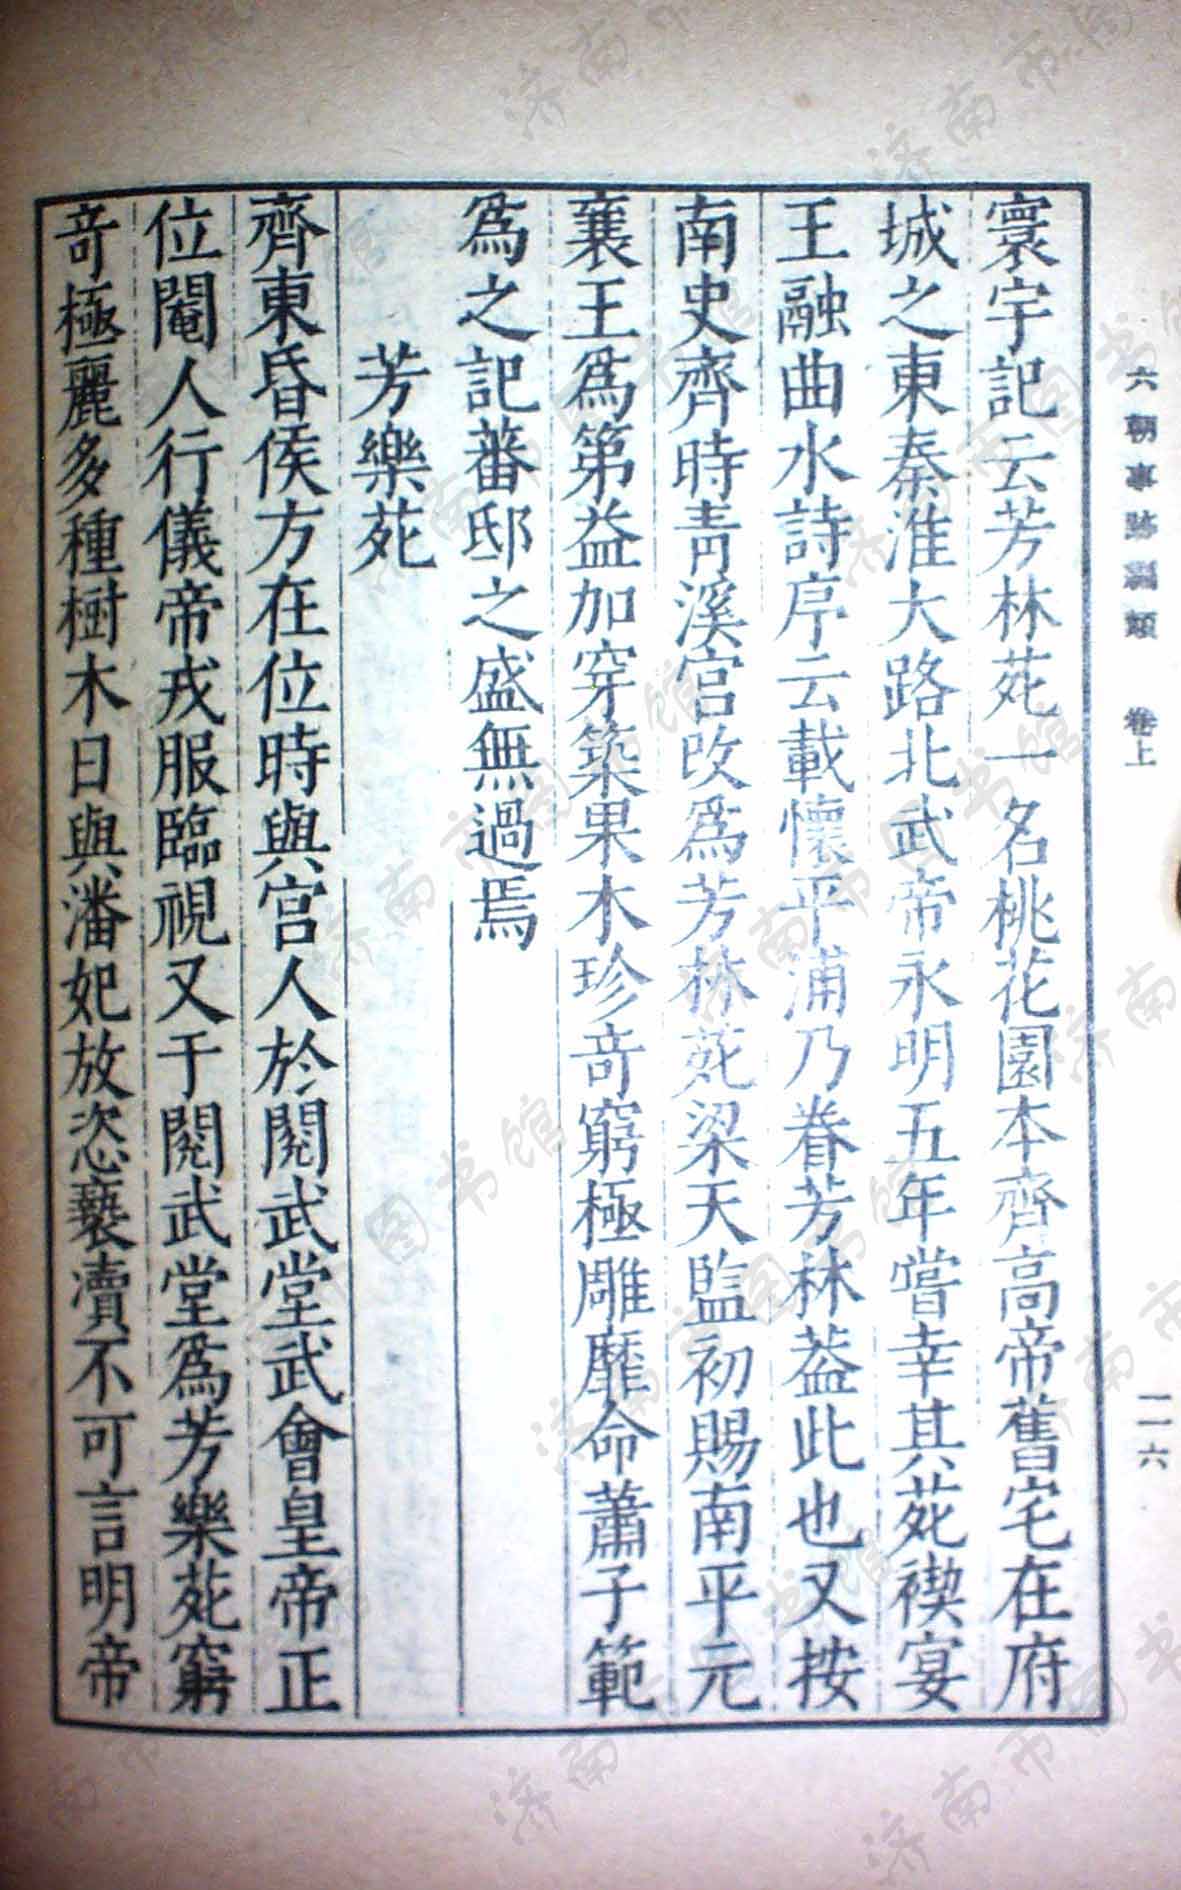 六朝事跡編類 卷上
一一六
寰宇記云芳林苑一名桃花園本齊高帝舊宅在府
城之東秦淮大路北武帝永明五年嘗幸其苑禊宴
王融曲水詩序云載懷平浦乃眷芳林葢此也又按
南史齊時青溪宮改爲芳林苑梁天監初賜南平元
襄王爲第益加穿築果木珍竒窮極雕靡命蕭子範
爲之記蕃邸之盛無過焉
芳樂苑
齊東昏侯方在位時與宮人於閱武堂武會皇帝正
位閹人行儀帝戎服臨視又于閱武堂爲芳樂苑窮
竒極麗多種樹木日與潘妃放恣褻瀆不可言明帝
济南市图书馆